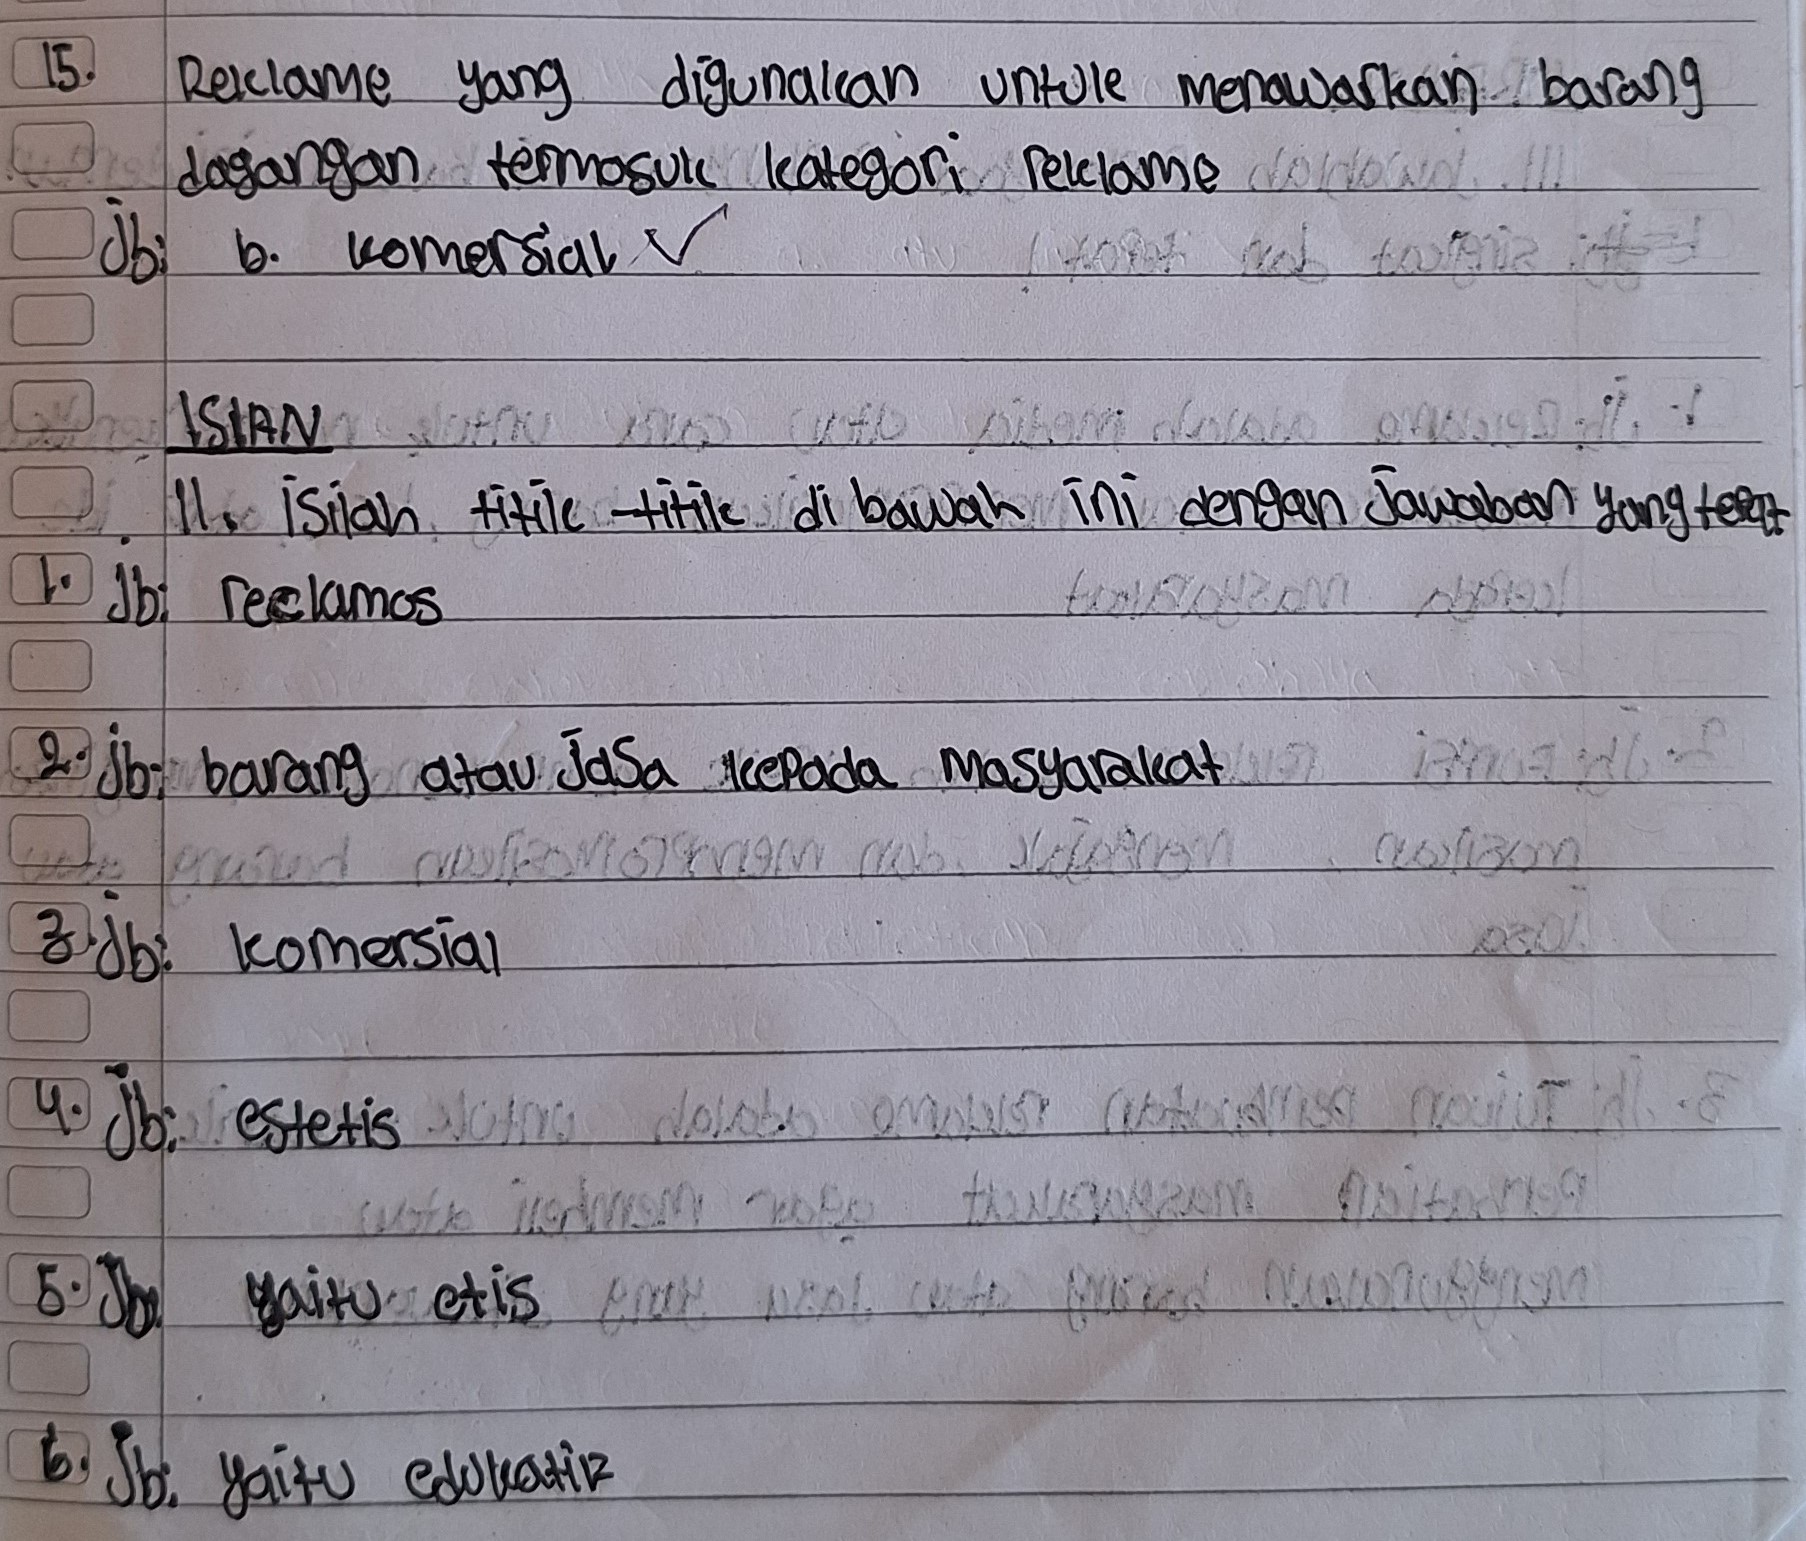 15. Reklame yang digunakan untuk menawarkan barang
dagangan termasuk kategori reklame
Jb: b. komersial ✓
ISIAN
II. isilah titik-titik di bawah ini dengan Jawaban yang
1. Jb: reclamos
2. Jb: barang atau Jasa kepada Masyarakat
3. Jb: komersial
4. Jb: estetis
5. Jb: yaitu etis
6. Jb: yaitu edukatif